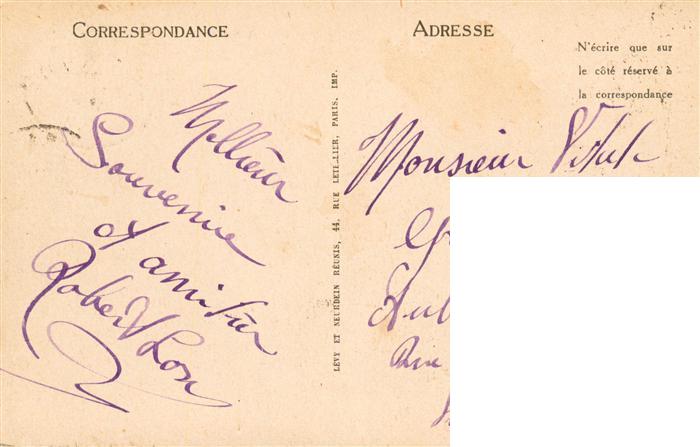 CORRESPONDANCE
Meilleur
Souvenir
et amitiés
Robert Lon
LEVY ET NEURDEIN RÉUNIS, 44, RUE LETELLIER, PARIS, IMP.
ADRESSE
N'écrire que sur
le côté réservé à
la correspondance
Monsieur
Rue